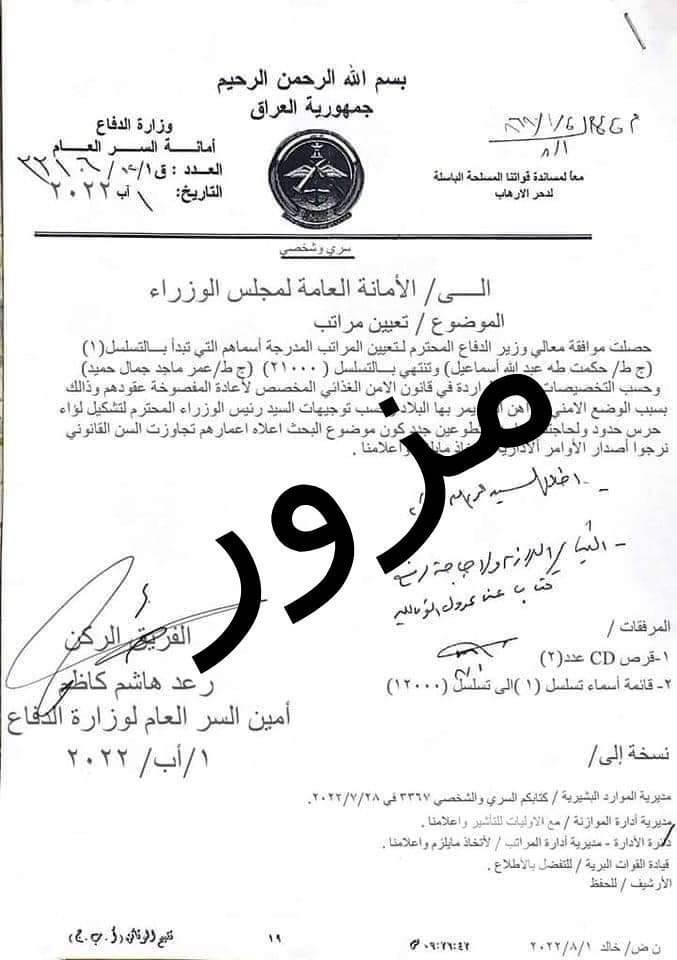 بسم الله الرحمن الرحيم
جمهورية العراق
وزارة الدفاع
أمانة السر العام
العدد : ق/١/
التاريخ: ١ آب ٢٠٢٢
معاً لمساندة قواتنا المسلحة الباسلة
لدحر الارهاب
سري وشخصي
الـــى/ الأمانة العامة لمجلس الوزراء
الموضوع / تعيين مراتب
حصلت موافقة معالي وزير الدفاع المحترم لتعيين المراتب المدرجة أسماهم التي تبدأ بـــالتسلسل(١)
(ج ط/ حكمت طه عبد الله أسماعيل) وتنتهي بـــالتسلسل ( ٢١٠٠٠) (ج ط/عمر ماجد جمال حميد)
وحسب التخصيصات اردة في قانون الامن الغذائي المخصص لأعادة المفصوخة عقودهم وذالك
بسبب الوضع الامني اهن يمر بها البلاد سب توجيهات السيد رئيس الوزراء المحترم لتشكيل لؤاء
حرس حدود ولحاجتنا طوعين جدد كون موضوع البحث اعلاه اعمارهم تجاوزت السن القانوني
نرجوا أصدار الأوامر الادارية تخاذ مايلزم واعلامنا .
مزور
الفريق الركن
رعد هاشم كاظم
أمين السر العام لوزارة الدفاع
١/أب/ ٢٠٢٢
المرفقات /
١-قرص CD عدد(٢)
٢- قائمة أسماء تسلسل (١ )الى تسلسل (١٢٠٠٠)
نسخة إلى/
مديرية الموارد البشيرية / كتابكم السري والشخصي ٣٣٦٧ في ٢٠٢٢/٧/٢٨.
مديرية أدارة الموازنة / مع الاوليات للتأشير واعلامنا .
دائرة الأدارة - مديرية أدارة المراتب / لأتخاذ مايلزم واعلامنا .
قيادة القوات البرية / للتفضل بالأطلاع .
الأرشيف / للحفظ
ن ض/ خالد ٢٠٢٢/٨/١
٠٩:٢٦:٤٢
١٩
(أ . ب . ج)